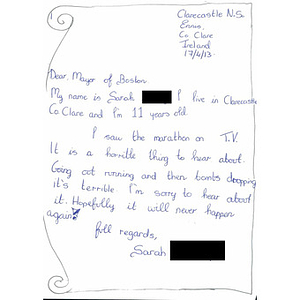 Clarecastle N.S.
Ennis,
Co Clare
Ireland
17/4/13.
Dear, Mayor of Boston
My name is Sarah I live in Clarecastle
Co Clare and I'm 11 years old.
I saw the marathon on T.V.
It is a horrible thing to hear about.
Going out running and then bombs dropping
it's terrible I'm sorry to hear about
it. Hopefully it will never happen
again
full regards,
Sarah